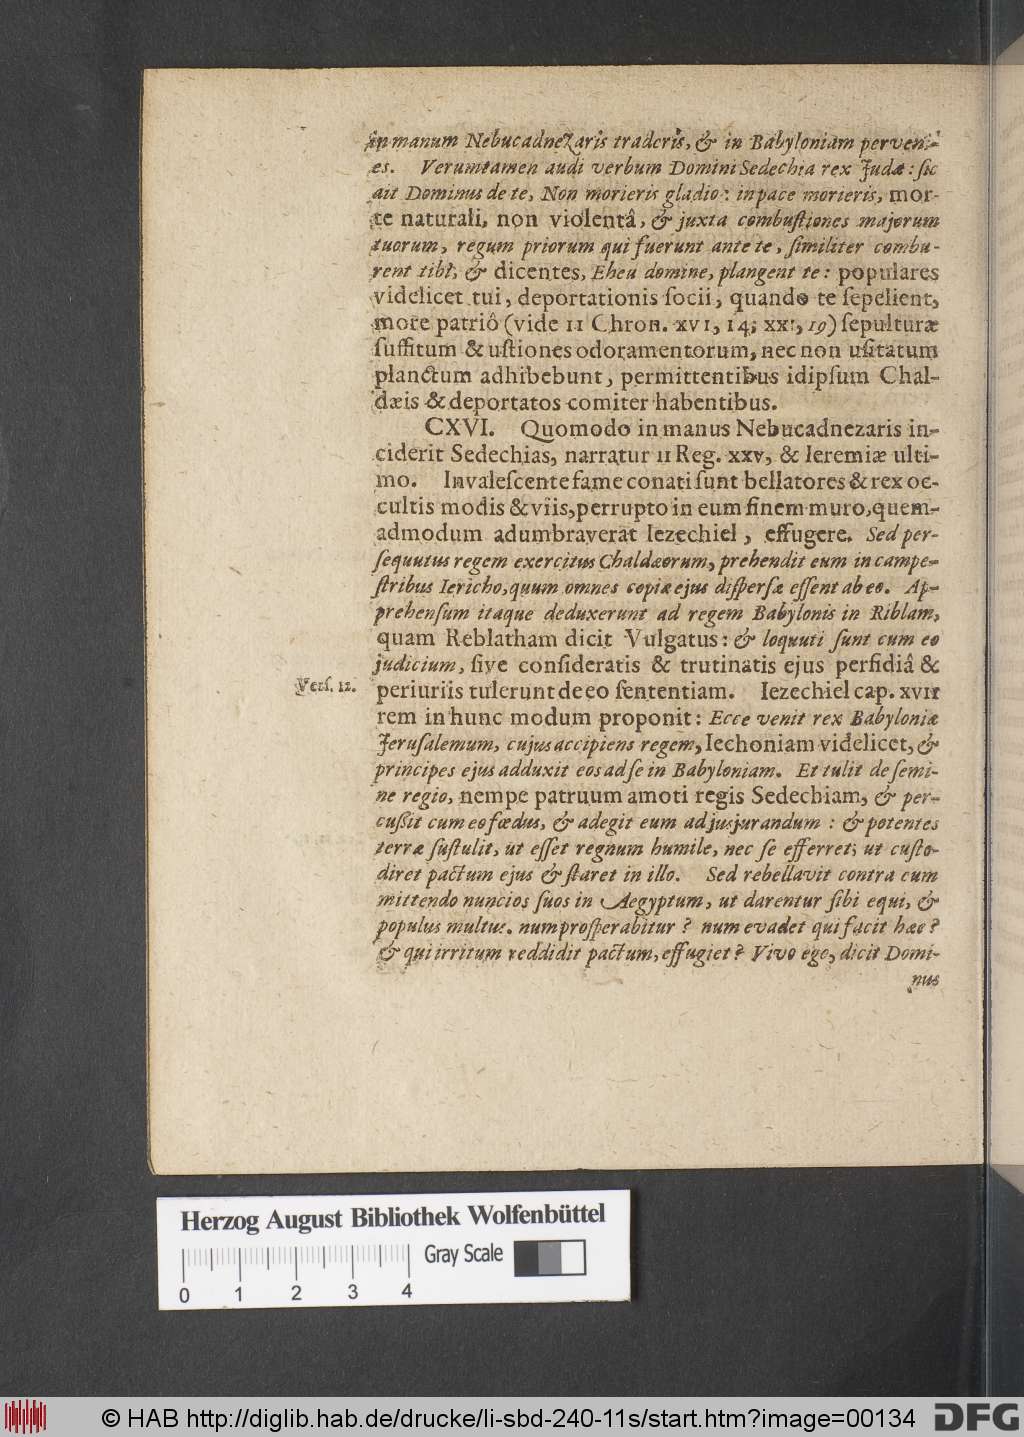 in manum Nebucadnezaris traderis, & in Babyloniam perveni-
es. Verumtamen audi verbum Domini Sedechia rex Judæ: ſic
ait Dominus de te, Non morieris gladio: in pace morieris, mor-
te naturali, non violentâ, & juxta combuſtiones majorum
tuorum, regum priorum qui fuerunt ante te, ſimiliter combu-
rent tibi, & dicentes, Eheu domine, plangent te: populares
videlicet tui, deportationis ſocii, quando te ſepelient,
more patriô (vide II Chron. XVI, 14; XXI, 19) ſepulturæ
ſuffitum & uſtiones odoramentorum, nec non uſitatum
planctum adhibebunt, permittentibus idipſum Chal-
dæis & deportatos comiter habentibus.
CXVI. Quomodo in manus Nebucadnezaris in-
ciderit Sedechias, narratur II Reg. XXV, & Ieremiæ ulti-
mo. Invaleſcente fame conati ſunt bellatores & rex oc-
cultis modis & viis, perrupto in eum finem muro, quem-
admodum adumbraverat Iezechiel, effugere. Sed per-
ſequutus regem exercitus Chaldæorum, prehendit eum in campe-
ſtribus Iericho, quum omnes copiæ ejus diſperſæ eſſent ab eo. Ap-
prehenſum itaque deduxerunt ad regem Babylonis in Riblam,
quam Reblatham dicit Vulgatus: & loquuti ſunt cum eo
judicium, ſive conſideratis & trutinatis ejus perfidiâ &
Verſ. 12.
periuriis tulerunt de eo ſententiam. Iezechiel cap. XVII
rem in hunc modum proponit: Ecce venit rex Babyloniæ
Jeruſalemum, cujus accipiens regem, Iechoniam videlicet, &
principes ejus adduxit eos ad ſe in Babyloniam. Et tulit de ſemi-
ne regio, nempe patruum amoti regis Sedechiam, & per-
cuſſit cum eo fœdus, & adegit eum ad jusjurandum : & potentes
terræ ſuſtulit, ut eſſet regnum humile, nec ſe efferret; ut cuſto-
diret pactum ejus & ſtaret in illo. Sed rebellavit contra eum
mittendo nuncios ſuos in Aegyptum, ut darentur ſibi equi, &
populus multus. num proſperabitur ? num evadet qui facit hæc ?
& qui irritum reddidit pactum, effugiet ? Vivo ego, dicit Domi-
nus
Herzog August Bibliothek Wolfenbüttel
Gray Scale
0 1 2 3 4
© HAB http://diglib.hab.de/drucke/li-sbd-240-11s/start.htm?image=00134
DFG